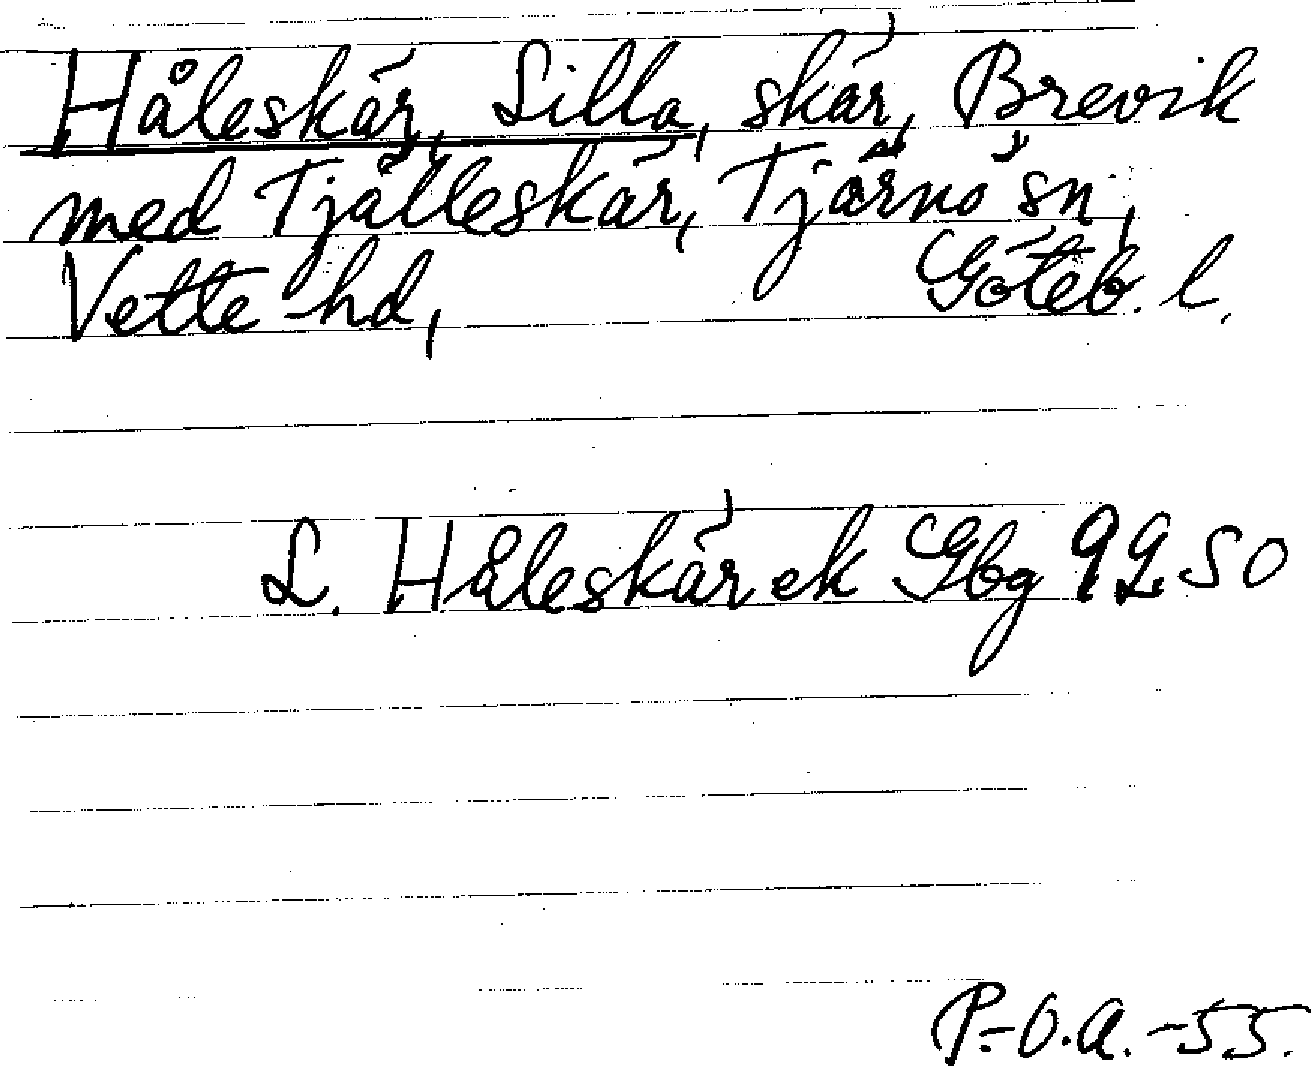 Håleskär, Lilla, skär, Brevik
med Tjälleskär, Tjärnö sn,
Vette hd, Göteb. l.
L. Håleskär ek Gbg 99 50
P.-O.A. -55.